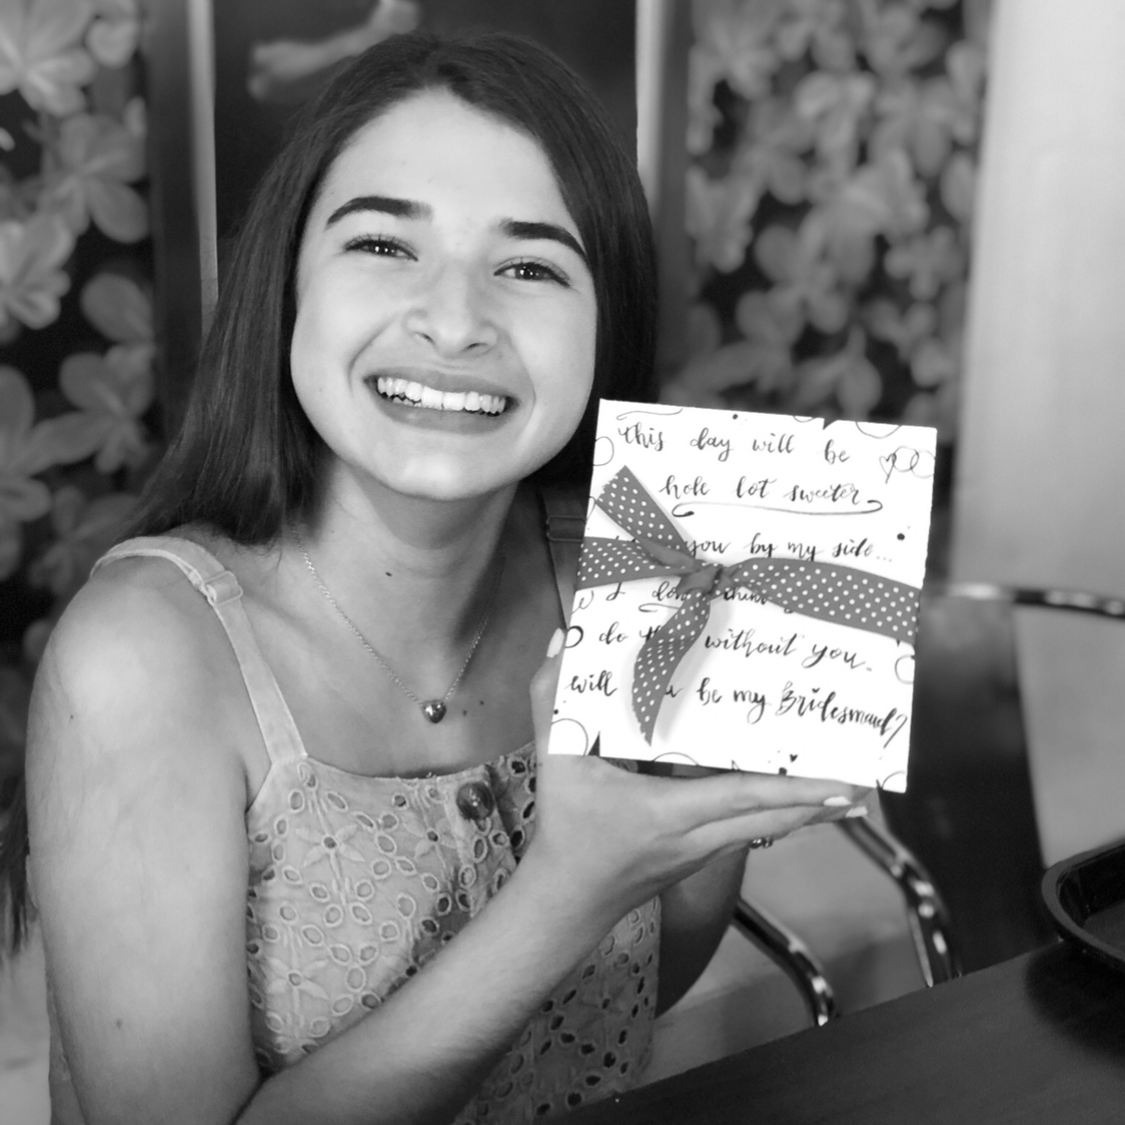 this day will be
hole lot sweeter
you by my side...
I
do without you.
will be my Bridesmaid?